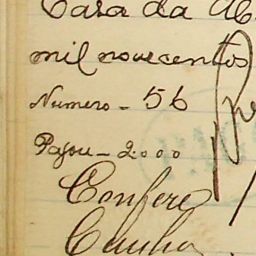 Casa da
mil novecentos
Numero - 56
Pagou - 2000
Confere
Cunha